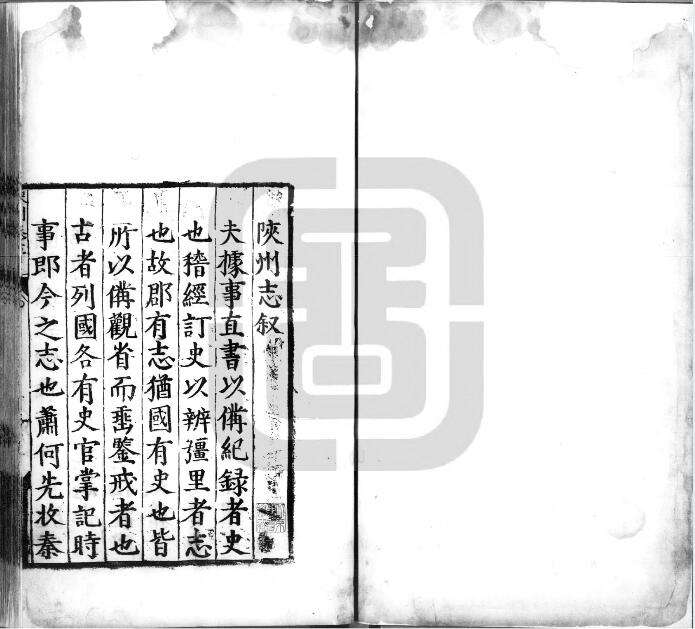 陝州志叙
夫據事直書以俻紀録者史
也稽經訂史以辨疆里者志
也故郡有志猶國有史也皆
所以俻觀省而垂鑒戒者也
古者列國各有史官掌記時
事郎今之志也蕭何先收秦